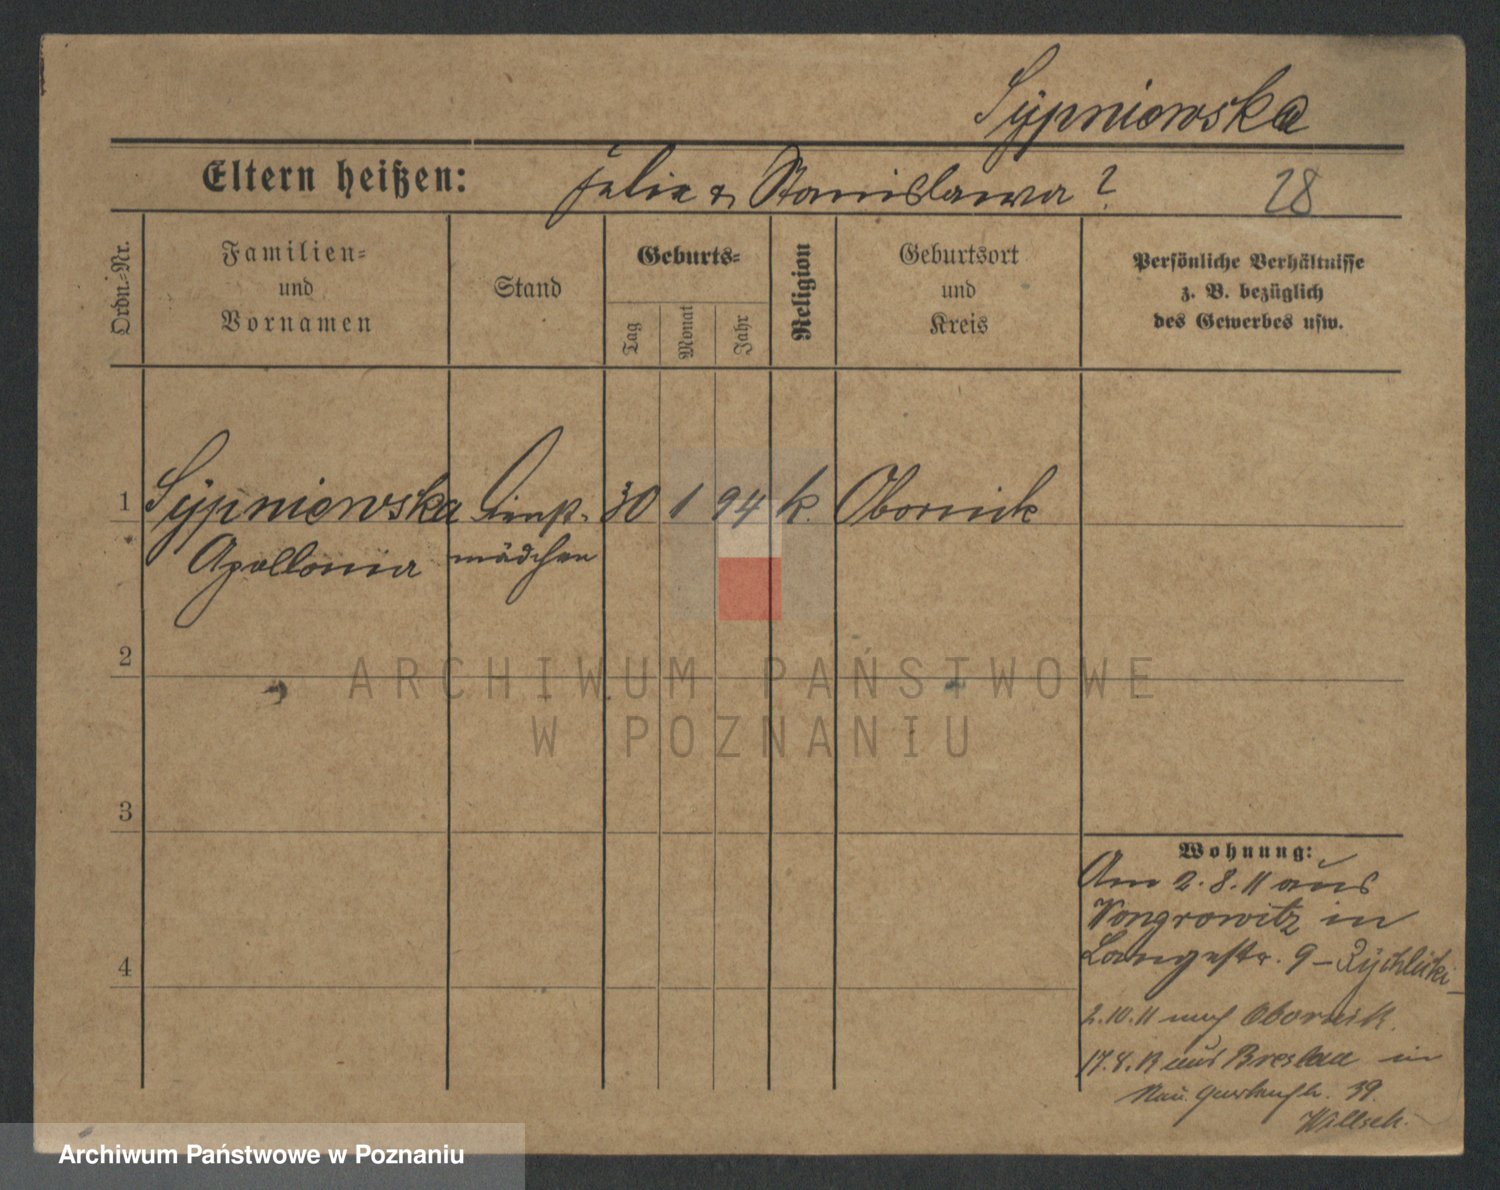 Sypniewska
Eltern heißen: Felix u. Stanislawa ? 28
Ordn.-Nr.
Familien-
und
Vornamen
Stand
Geburts-
Tag
Monat
Jahr
Religion
Geburtsort
und
Kreis
Persönliche Verhältnisse
z. B. bezüglich
des Gewerbes usw.
1 Sypniewska Dienst- 30 1 94 k. Obornik
Apollonia mädchen
2
3
4
Wohnung:
Am 2.8.11 aus
Wongrowitz in
Langestr. 9 – Rychlicki
2.10.11 nach Obornik.
aus Breslau in
39.
ARCHIWUM PAŃSTWOWE
W POZNANIU
Archiwum Państwowe w Poznaniu